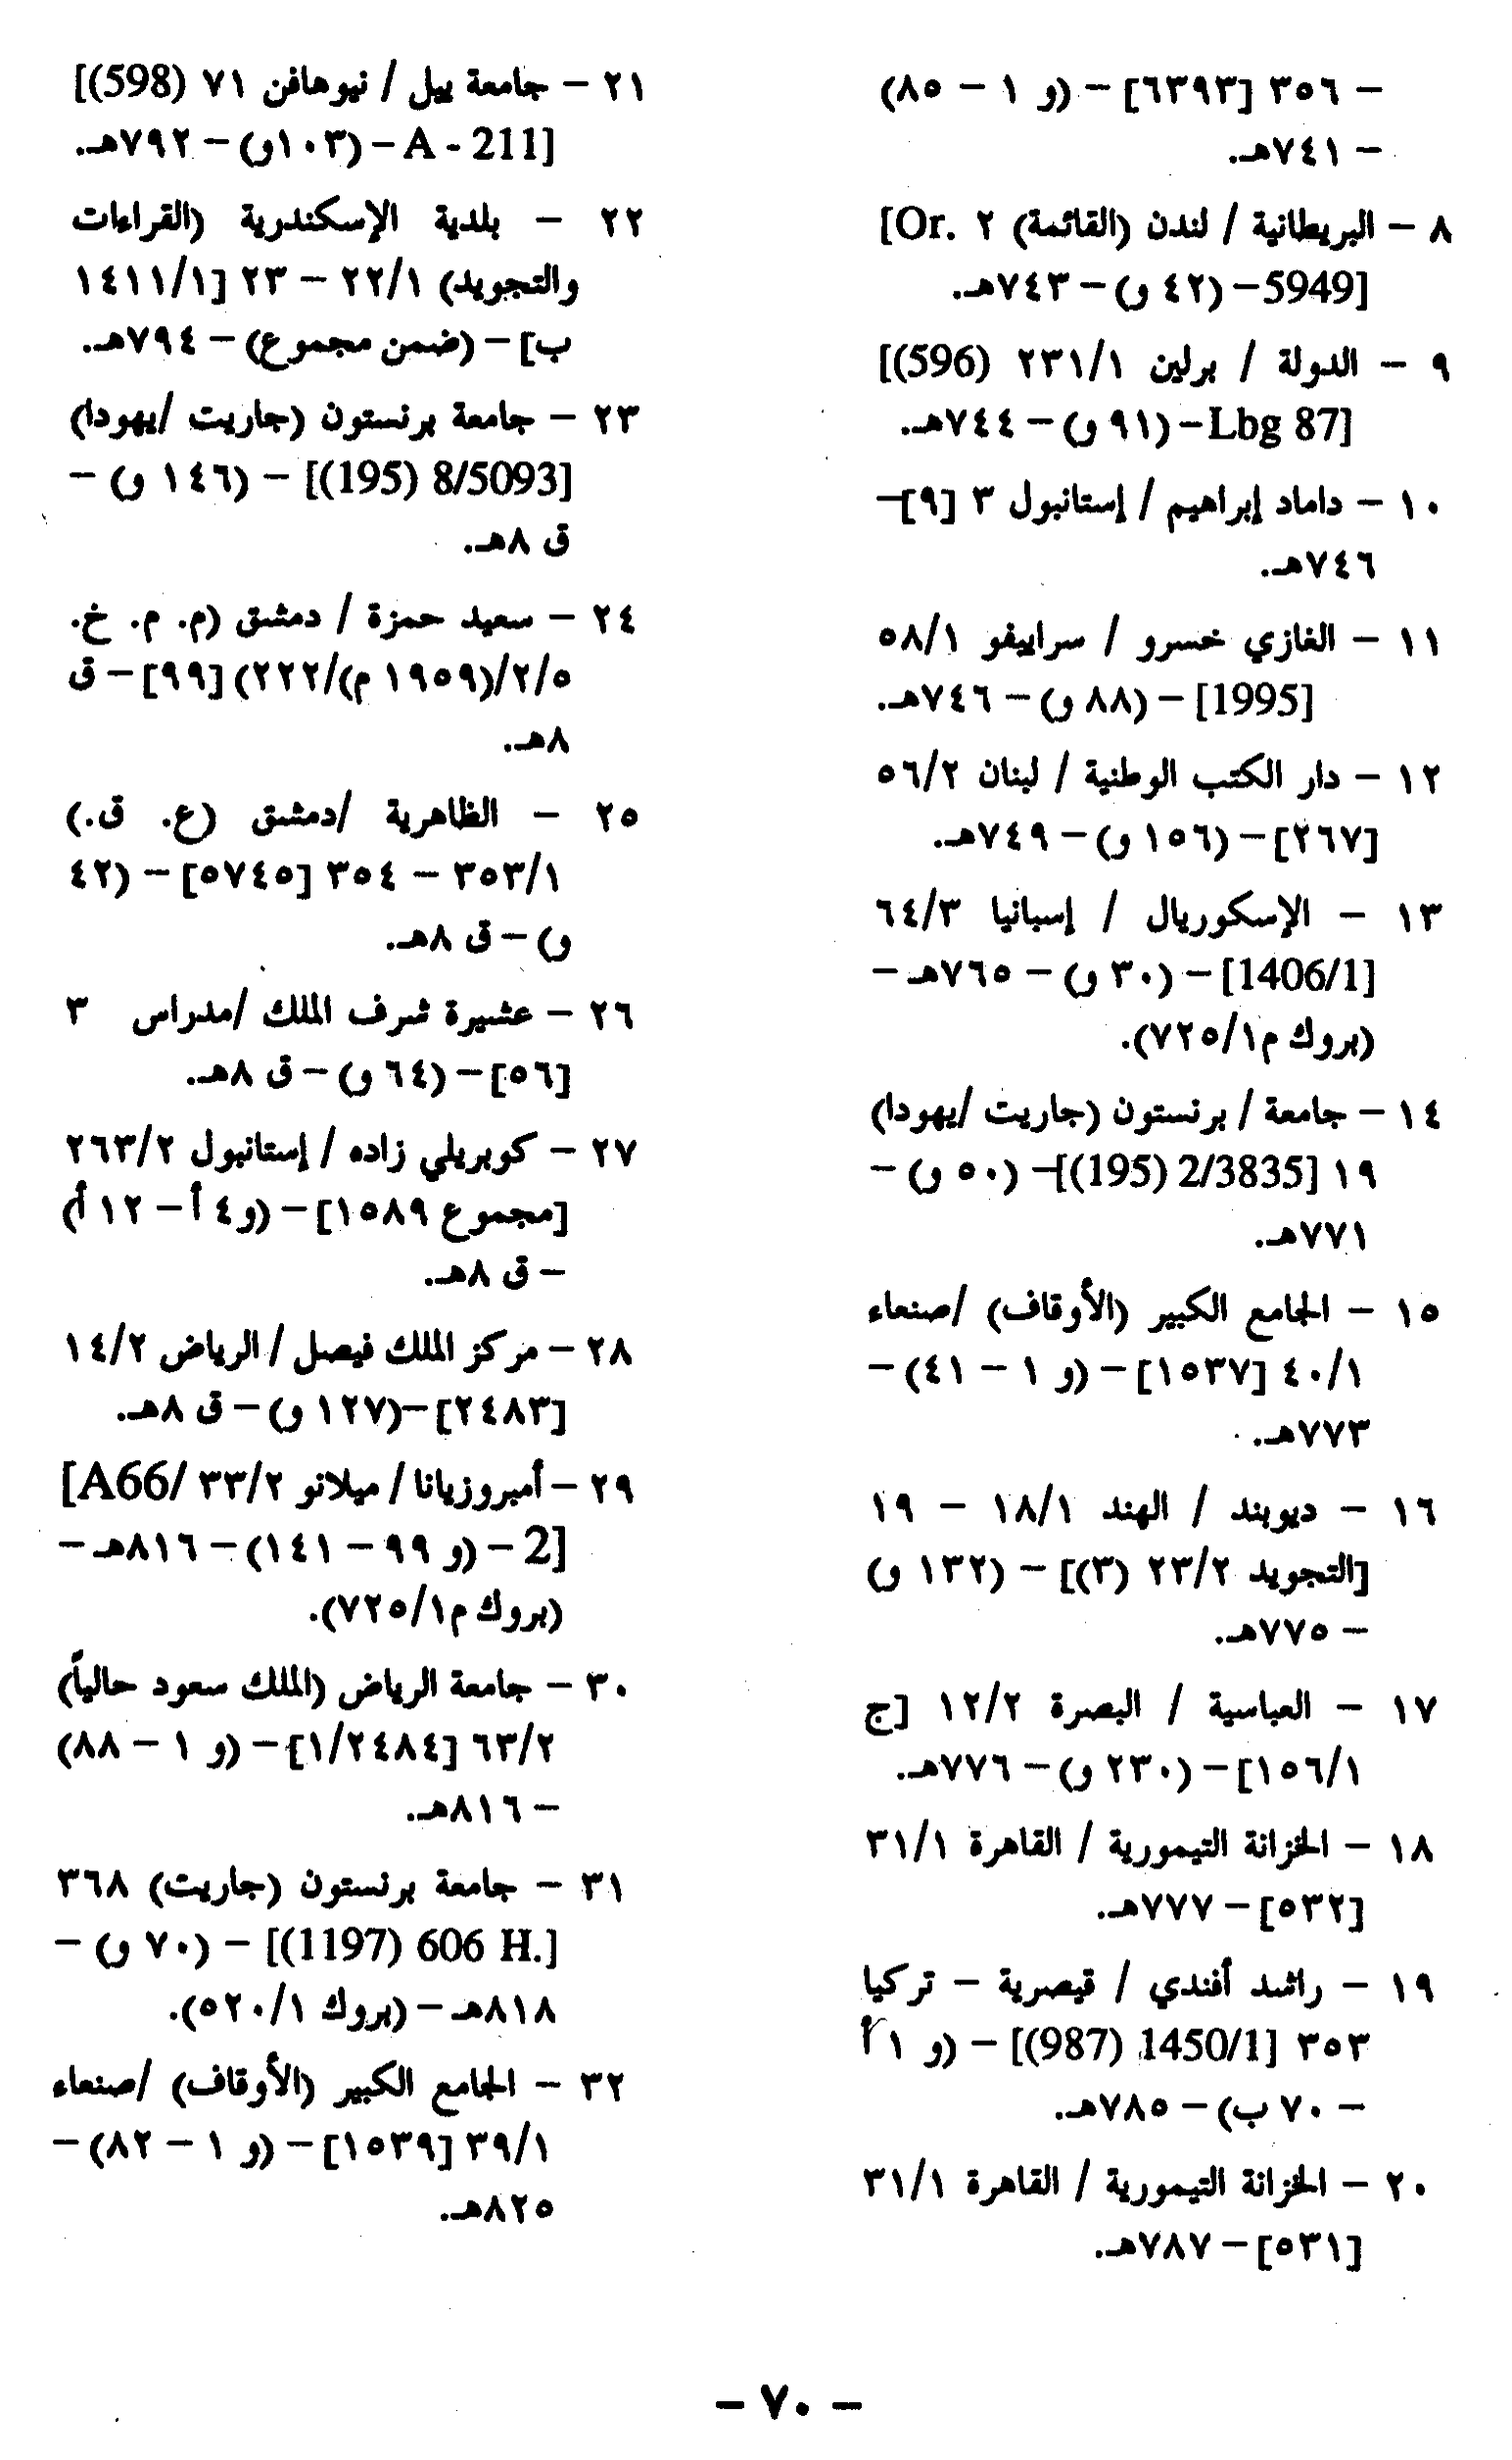 – ٣٥٦ [٦٣٩٣] – (و ١ – ٨٥)
– ٧٤١هـ.
٨ – البريطانية / لندن (القائمة) ٢ [Or.
5949] – (٤٢ و) – ٧٤٣هـ.
٩ – الدولة / برلين ٢٣١/١ [(596)
Lbg 87] – (٩١ و) – ٧٤٤هـ.
١٠ – داماد إبراهيم / إستانبول ٣ [٩] –
٧٤٦هـ.
١١ – الغازي خسرو / سراييفو ٥٨/١
[1995] – (٨٨ و) – ٧٤٦هـ.
١٢ – دار الكتب الوطنية / لبنان ٥٦/٢
[٢٦٧] – (١٥٦ و) – ٧٤٩هـ.
١٣ – الإسكوريال / إسبانيا ٦٤/٣
[1406/1] – (٣٠ و) – ٧٦٥هـ –
(بروك م٧٢٥/١).
١٤ – جامعة / برنستون (جاريت /يهودا)
١٩ [(195) 2/3835] – (٥٠ و) –
٧٧١هـ.
١٥ – الجامع الكبير (الأوقاف) /صنعاء
٤٠/١ [١٥٣٧] – (و ١ – ٤١) –
٧٧٣هـ.
١٦ – ديوبند / الهند ١٨/١ – ١٩
[التجويد ٢٣/٢ (٣)] – (١٣٢ و)
– ٧٧٥هـ.
١٧ – العباسية / البصرة ١٢/٢ [ج
١٥٦/١] – (٢٣٠ و) – ٧٧٦هـ.
١٨ – الخزانة التيمورية / القاهرة ٣١/١
[٥٣٢] – ٧٧٧هـ.
١٩ – راشد أفندي / قيصرية – تركيا
٣٥٣ [(987) 1450/1] – (و ١أ
– ٧٠ ب) – ٧٨٥هـ.
٢٠ – الخزانة التيمورية / القاهرة ٣١/١
[٥٣١] – ٧٨٧هـ.
٢١ – جامعة ييل / نيوهافن ٧١ [(598)
A - 211] – (١٠٣و) – ٧٩٢هـ.
٢٢ – بلدية الإسكندرية (القراءات
والتجويد) ٢٢/١ – ٢٣ [١٤١١/١
ب] – (ضمن مجموع) – ٧٩٤هـ.
٢٣ – جامعة برنستون (جاريت /يهودا)
[(195) 8/5093] – (١٤٦ و) –
ق ٨هـ.
٢٤ – سعيد حمزة / دمشق (م. م. خ.
٢/٥/(١٩٥٩ م)/٢٢٢) [٩٩] – ق
٨هـ.
٢٥ – الظاهرية /دمشق (ع. ق.)
٣٥٣/١ – ٣٥٤ [٥٧٤٥] – (٤٢
و) – ق ٨هـ.
٢٦ – عشيرة شرف الملك /مدراس ٣
[٥٦] – (٦٤ و) – ق ٨هـ.
٢٧ – كوبريلي زاده / إستانبول ٢٦٣/٢
[مجموع ١٥٨٩] – (و٤ أ – ١٢ أ)
– ق ٨هـ.
٢٨ – مركز الملك فيصل / الرياض ١٤/٢
[٢٤٨٣] – (١٢٧ و) – ق ٨هـ.
٢٩ – أمبروزيانا / ميلانو ٣٣/٢ [A66/
2] – (و ٩٩ – ١٤١) – ٨١٦هـ –
(بروك م٧٢٥/١).
٣٠ – جامعة الرياض (الملك سعود حالياً)
٦٣/٢ [١/٢٤٨٤] – (و ١ – ٨٨)
– ٨١٦هـ.
٣١ – جامعة برنستون (جاريت) ٣٦٨
[(1197) 606 H.] – (٧٠ و) –
٨١٨هـ – (بروك ٥٢٠/١).
٣٢ – الجامع الكبير (الأوقاف) /صنعاء
٣٩/١ [١٥٣٩] – (و ١ – ٨٢) –
٨٢٥هـ.
– ٧٠ –